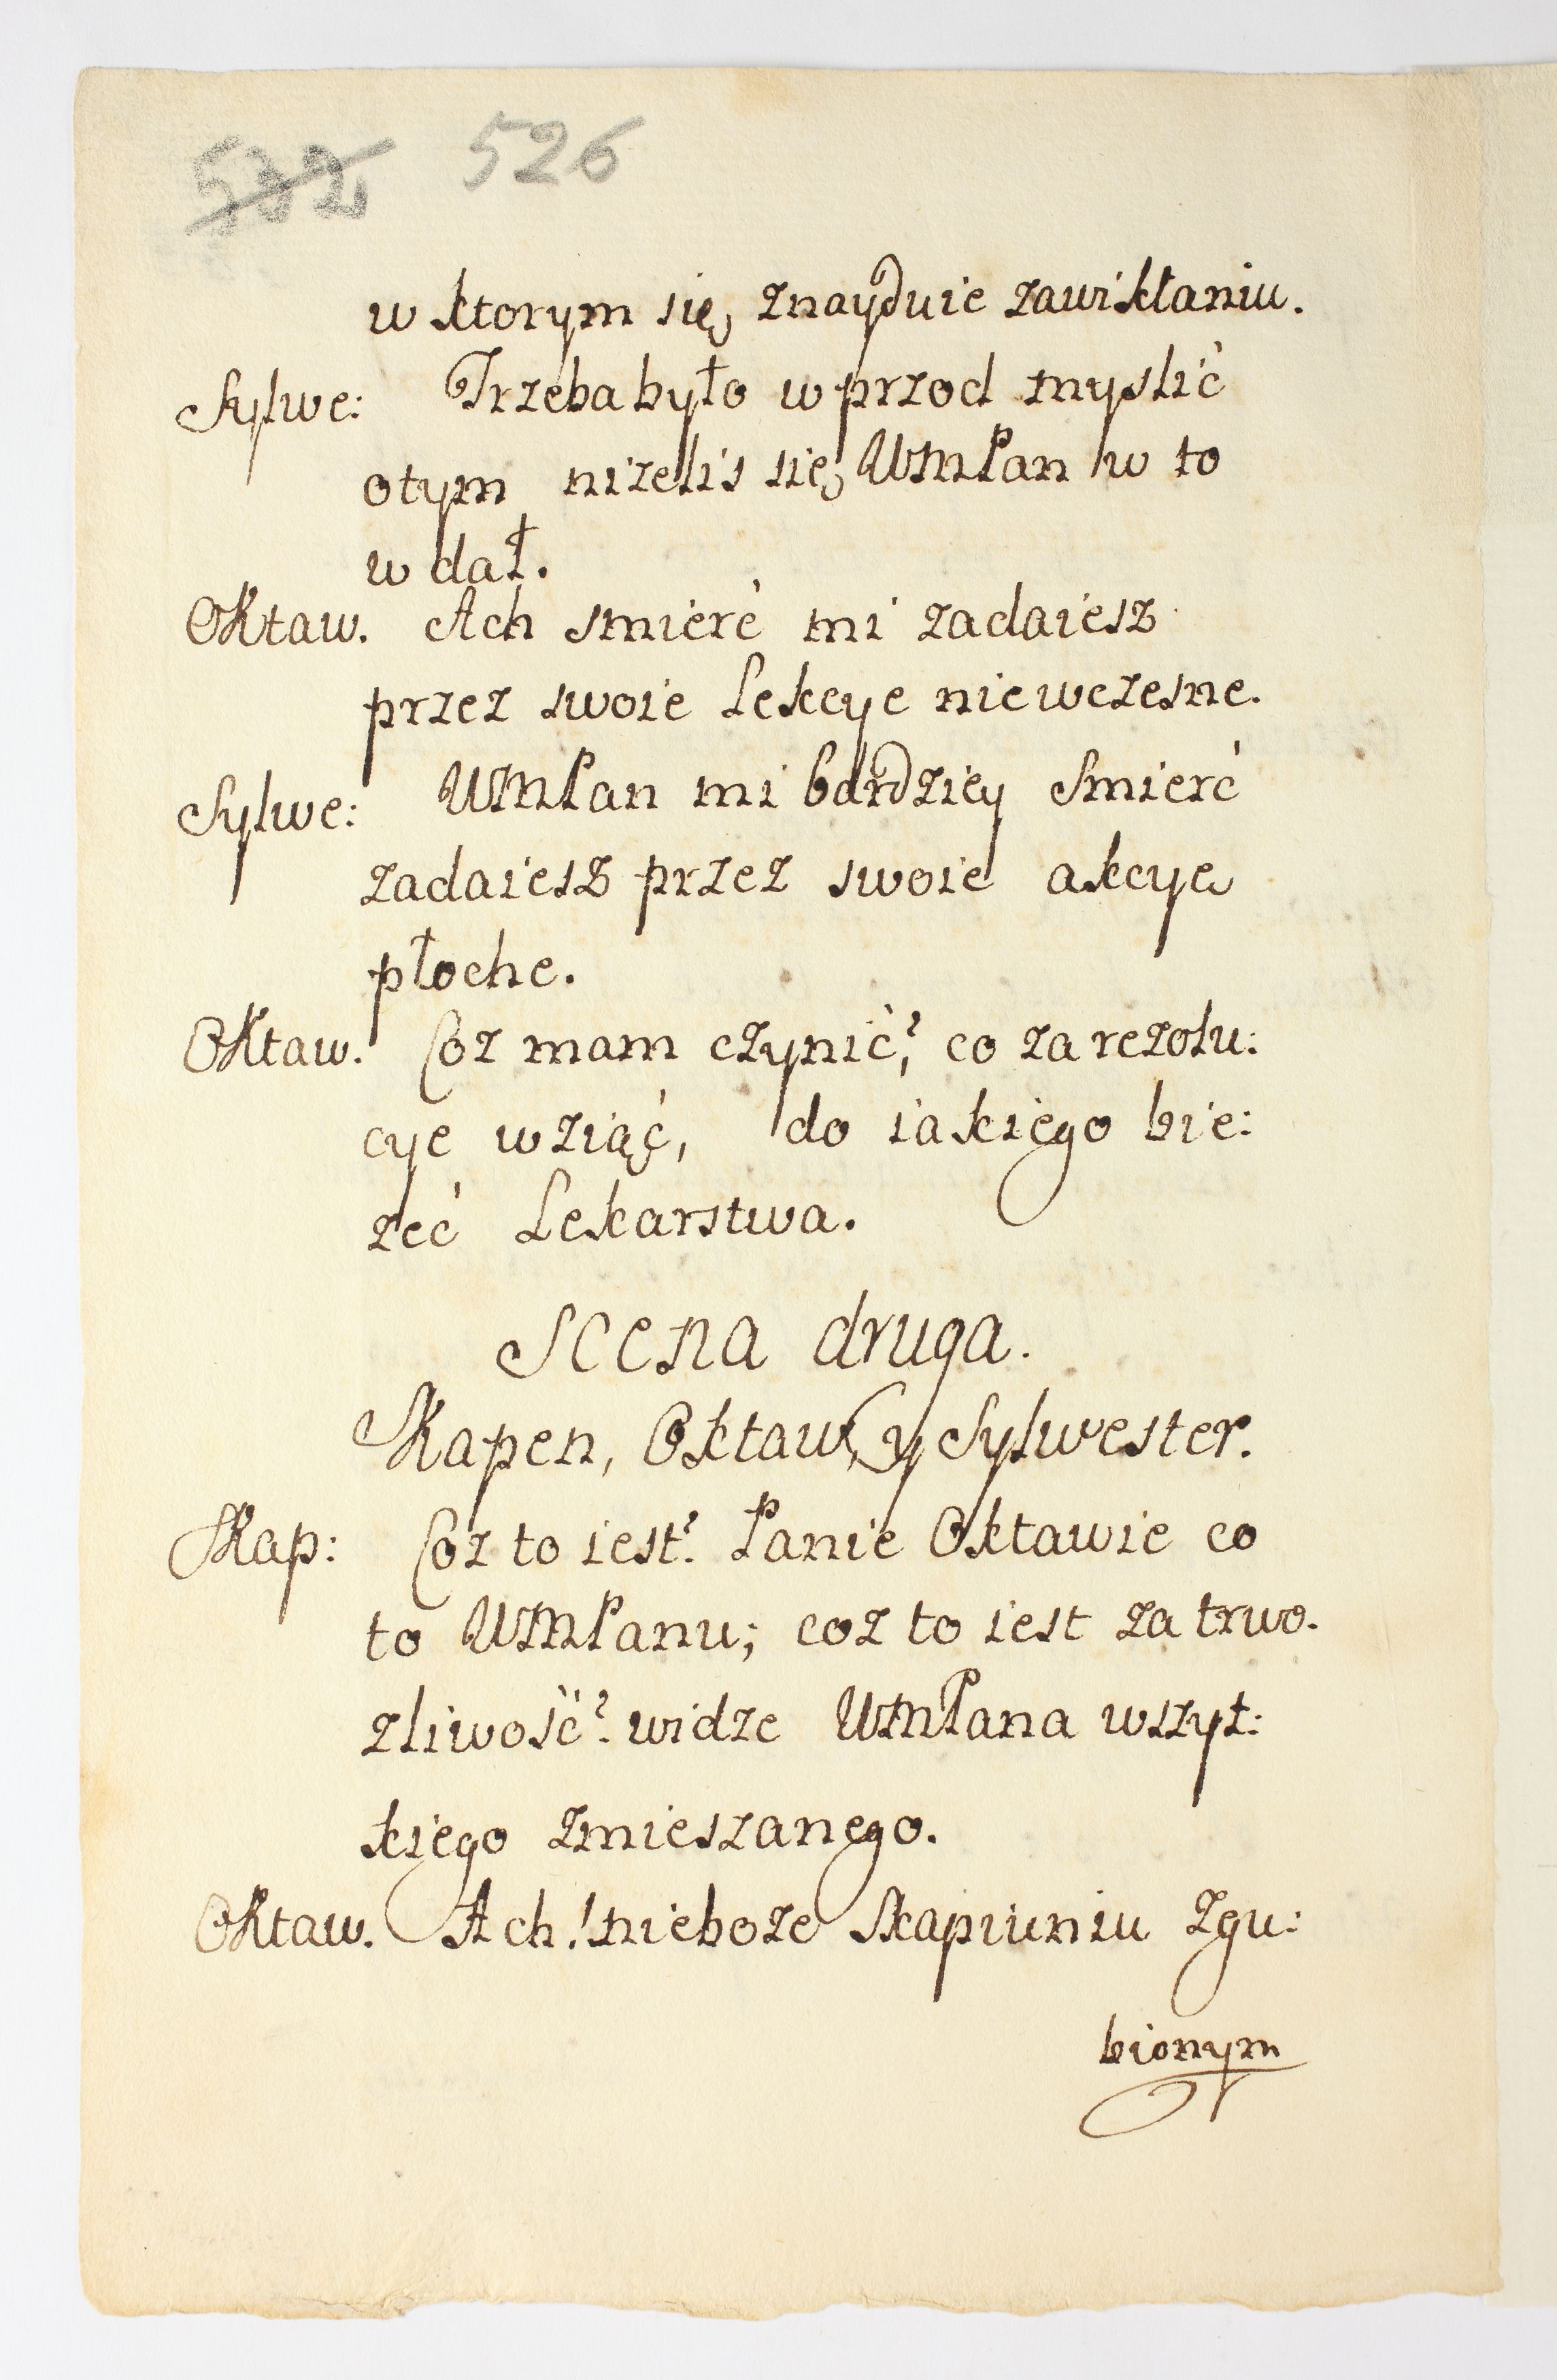 532 526
w ktorym się znayduie zawikłaniu.
Sylwe: Trzeba było wprzod myslić
otym niżelis się WMPan w to
w dał.
Oktaw. Ach smierć mi zadaiesz
przez swoie Lekcye niewczesne.
Sylwe: WMPan mi bardziey smierć
zadaiesz przez swoie akcye
płoche.
Oktaw. Coz mam czynić? co za rezolu:
cye wziąć, do iakiego bie:
zeć Lekarstwa.
Scena druga.
Skapen, Oktaw, y Sylwester.
Skap: Coz to iest? Panie Oktawie co
to WMPanu; coz to iest za trwo.
zliwość? widze WMPana wszyt:
kiego zmieszanego.
Oktaw. Ach! nieboze Skapiuniu zgu:
bionym